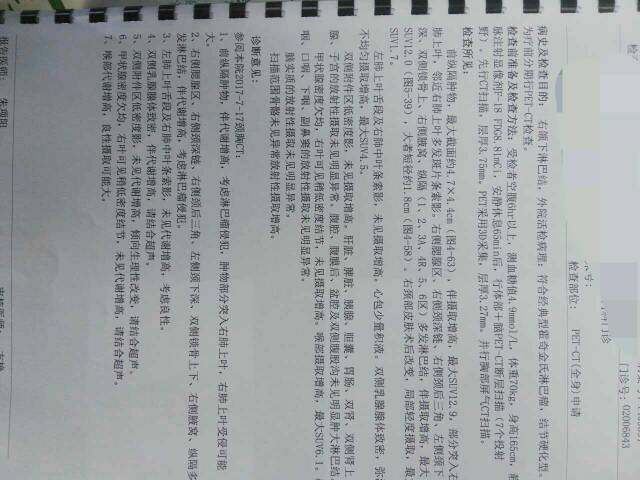 门诊号：02006843
检查部位： PET-CT(全身)申请
病史及检查目的：右颌下淋巴结，外院活检病理：符合经典型霍奇金氏淋巴瘤，结节硬化型。
为疗前分期行PET-CT检查。
检查前准备及检查方法：受检者空腹6hr以上，测血糖值4.9mmol/L，体重70kg，身高165cm，静
脉注射显像剂F-18 FDG8.81mCi，安静休息65min后，行体部＋脑PET-CT断层扫描（7个投射
野）。先行CT扫描，层厚3.75mm。PET采用3D采集，层厚3.27mm。并行胸部屏气CT扫描。
检查所见：
前纵隔肿物，最大截面约4.7×4.4cm（图4-63），伴摄取增高，最大SUV12.9，部分突入右
肺上叶，邻近右肺上叶多发斑片条索影。右侧腮腺区、右侧颈深链、右侧颈后三角、左侧颈下
深、双侧锁骨上、右侧腋窝、纵隔（1、2、3A、4R、5、6区）多发淋巴结，伴摄取增高，最大
SUV12.0（图5-39），大者短径约1.8cm（图4-58）。右颈部皮肤术后改变，局部轻度摄取，最
SUV1.7。
左肺上叶舌段及右肺中叶条索影，未见摄取增高。心包少量积液。双侧乳腺腺体致密，弥
不均匀摄取增高，最大SUV4.5。
双侧附件区低密度影，未见摄取增高。肝脏、脾脏、胰腺、胆囊、胃肠、双肾、双侧肾上
腺、子宫的放射性摄取未见明显异常。腹腔、腹膜后、盆腔及双侧腹股沟未见明显肿大淋巴结
甲状腺密度欠均，右叶可见稍低密度结节，未见摄取增高。喉部摄取增高，最大SUV6.1。
咽、口咽、下咽、副鼻窦的放射性摄取未见明显异常。
脑实质的放射性摄取未见明显异常。
扫描范围骨骼未见异常放射性摄取增高。
诊断意见：
参阅本院2017-7-17颈胸CT：
1、前纵隔肿物，伴代谢增高，考虑淋巴瘤侵犯，肿物部分突入右肺上叶，右肺上叶受侵可能
大。
2、右侧腮腺区、右侧颈深链、右侧颈后三角、左侧颈下深、双侧锁骨上下、右侧腋窝、纵隔多
发淋巴结，伴代谢增高，考虑淋巴瘤侵犯。
3、左肺上叶舌段及右肺中叶条索影，未见代谢增高，考虑良性。
4、双侧乳腺腺体致密，伴代谢增高，请结合超声。
5、双侧附件区低密度影，未见代谢增高，倾向生理性改变，请结合超声。
6、甲状腺密度欠均，右叶可见稍低密度结节，未见代谢增高，请结合超声。
7、喉部代谢增高，良性摄取可能大。
报告医师：